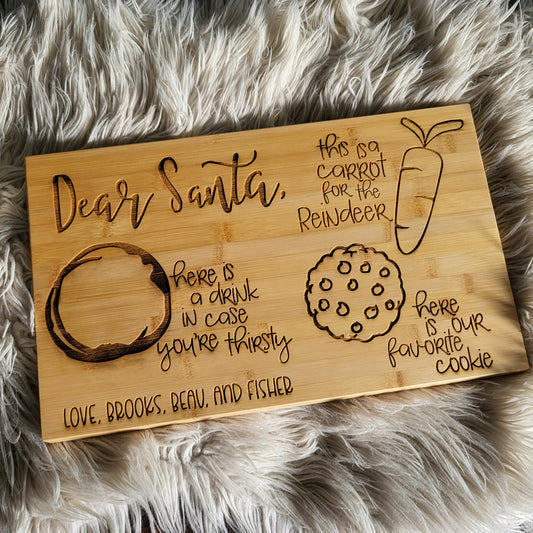 Dear Santa,
this is a
carrot
for the
Reindeer
here is
a drink
in case
you're thirsty
here
is our
favorite
cookie
LOVE, BROOKS, BEAU, AND FISHER